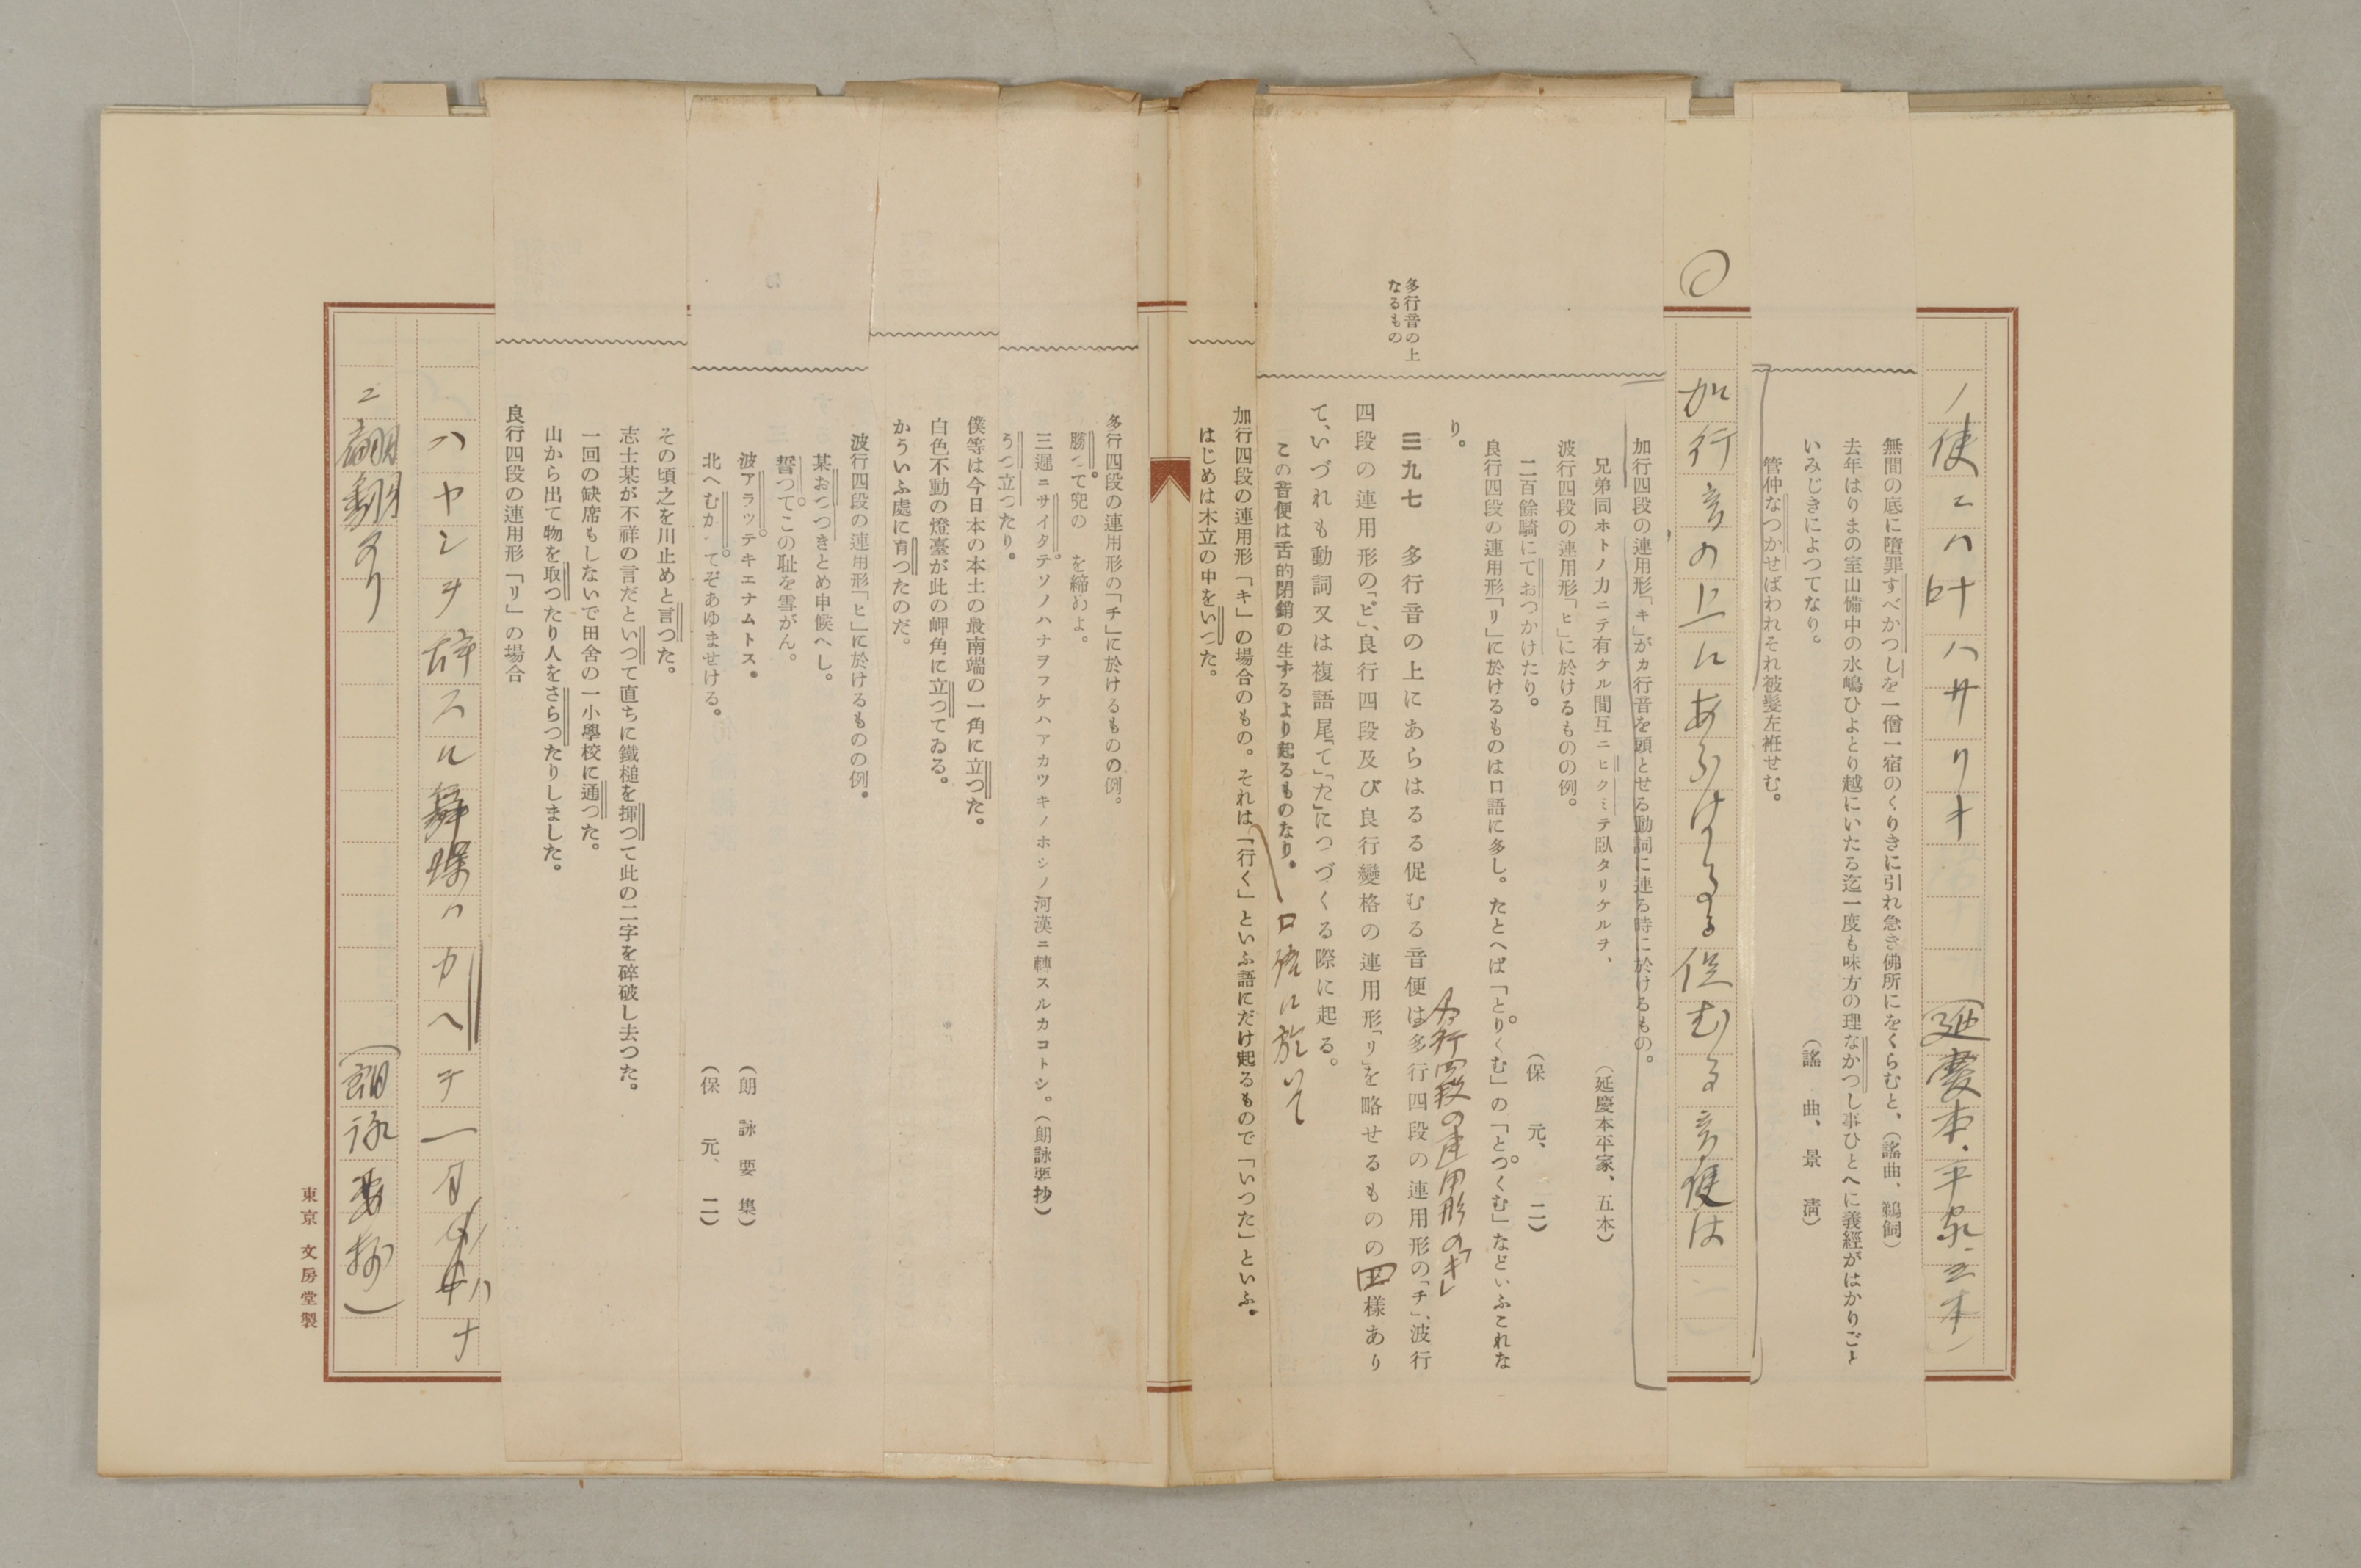 ノ使ニハ叶ハサリキ（延慶本、平家、三本）
無間の底に墮罪すべかつしを一僧一宿のくりきに引れ急き佛所にをくらむと、（謠曲、鵜飼）
去年はりまの室山備中の水嶋ひよとり越にいたる迄一度も味方の理なかつし事ひとへに義經がはかりごと
いみじきによつてなり。（謠曲、景淸）
管仲なつかせばわれそれ被髮左衽せむ。
加行音の上にあらはるる促むる音便は
加行四段の連用形「キ」がカ行音を頭とせる動詞に連る時に於けるもの。
兄弟同ホトノ力ニテ有ケル間互ニヒクミテ臥タリケルヲ、（延慶本平家、五本）
波行四段の連用形「ヒ」に於けるものの例。
二百餘騎にておつかけたり。（保元、二）
良行四段の連用形「リ」に於けるものは口語に多し。たとへば「とりくむ」の「とつくむ」などいふこれな
り。
多行音の上
なるもの
加行四段の連用形の「キ」
三九七 多行音の上にあらはるる促むる音便は多行四段の連用形の「チ」、波行
四段の連用形の「ヒ」、良行四段及び良行變格の連用形「リ」を略せるものの四樣あり
て、いづれも動詞又は複語尾「て」「た」につづくる際に起る。
この音便は舌的閉鎖の生ずるより起るものなり。
口語に於いて
加行四段の連用形「キ」の場合のもの。それは「行く」といふ語にだけ起るもので「いつた」といふ。
はじめは木立の中をいつた。
多行四段の連用形の「チ」に於けるものの例。
勝つて兜の を締めよ。
三遲ニサイタテソノハナヲフケハアカツキノホシノ河漢ニ轉スルカコトシ。（朗詠要抄）
うつ立つたり。
僕等は今日本の本土の最南端の一角に立つた。
白色不動の燈臺が此の岬角に立つてゐる。
かういふ處に育つたのだ。
波行四段の連用形「ヒ」に於けるものの例。
某おつつきとめ申候へし。
誓つてこの耻を雪がん。
波アラッテキエナムトス。（朗詠要集）
北へむかつてぞあゆませける。（保元、二）
その頃之を川止めと言つた。
志士某が不祥の言だといつて直ちに鐵槌を揮つて此の二字を碎破し去つた。
一回の缺席もしないで田舍の一小學校に通つた。
山から出て物を取つたり人をさらつたりしました。
良行四段の連用形「リ」の場合
ハヤシヲ辞スル舞蝶ハカヘテ一月
ニ翩翻タリ（朗詠要抄）
東京 文房堂製